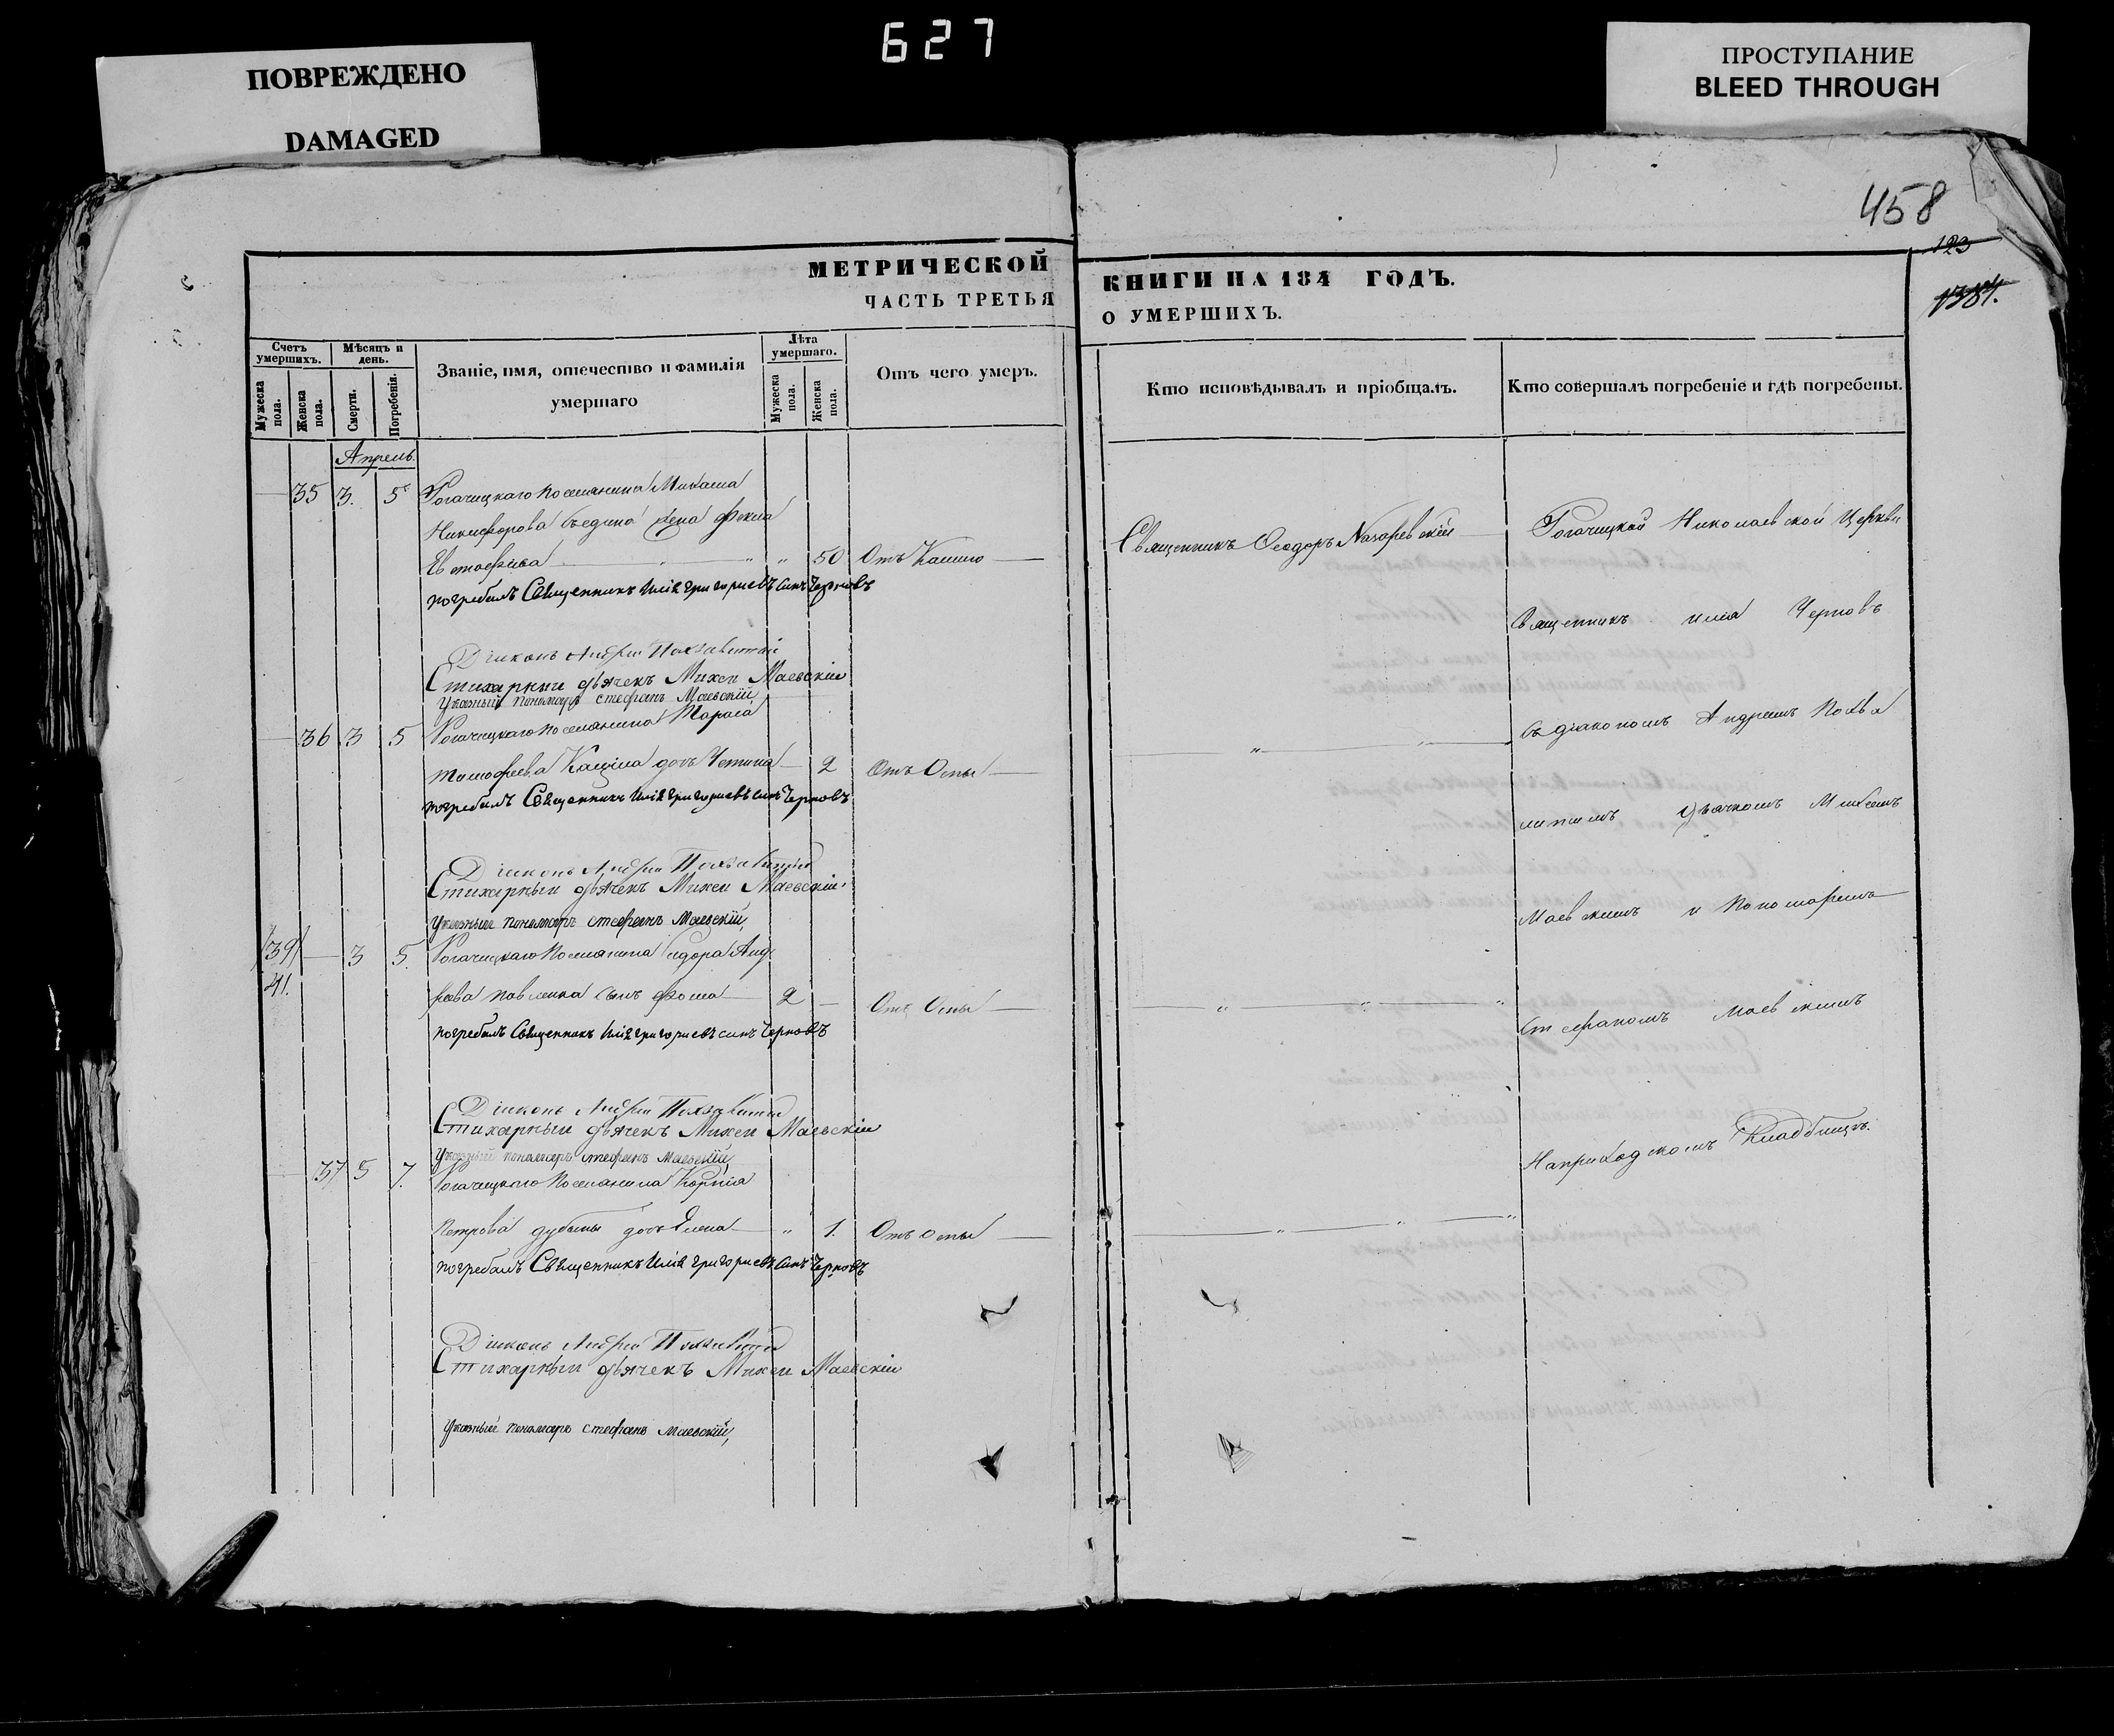 627
ПОВРЕЖДЕНО
DAMAGED
ПРОСТУПАНИЕ
BLEED THROUGH
458
123
1384.
МЕТРИЧЕСКОЙ
ЧАСТЬ ТРЕТЬЯ
КНИГИ НА 184 ГОДЪ.
О УМЕРШИХЪ.
Счетъ умершихъ.
Мужеска пола.
Женска пола.
Мѣсяцъ и день.
Смерти.
Погребенія.
Званіе, имя, отечество и фамилія
умершаго
Лѣта умершаго.
Мужеска пола.
Женска пола.
Отъ чего умеръ.
Кто исповѣдывалъ и пріобщалъ.
Кто совершалъ погребеніе и гдѣ погребены.
Апрель.
35 3. 5 Рогачицкаго поселянина
Никифорова жена Фекла
50 Отъ Кашлю
погребалъ Священникъ Илія григориевъ синъ Черновъ
Діаконъ Андрей Похвалитый
Стихарный дьячекъ Михей Маевскій
Указный пономаръ стефанъ Маевскій,
36 3 5 Рогачицкаго поселянина Тараса
Тимофеева дочь 2 Отъ Оспы
погребалъ Священникъ Илія григориевъ синъ Черновъ
Діаконъ Андрей Похвалитый
Стихарный дьячекъ Михей Маевскій
Указный пономаръ стефанъ Маевскій,
39 3 5. Рогачицкаго поселянина Сидора Анд
41.
реева Павленка сынъ Фома 2 Отъ Оспы
погребалъ Священникъ Илія григориевъ синъ Черновъ
Діаконъ Андрей Похвалитый
Стихарный дьячекъ Михей Маевскій
Указный пономаръ стефанъ Маевскій,
37 5 7. Рогачицкаго поселянина Корнія
Петрова дубины дочь Елена " 1. Отъ оспы
погребалъ Священникъ Илія григориевъ синъ Черновъ
Діаконъ Андрей Похвалитый
Стихарный дьячекъ Михей Маевскій
Указный пономаръ стефанъ Маевскій,
Священникъ Феодоръ Назаревскій
Рогачицкой Николаевской Церкви
Священникъ илія Черновъ
съ діакономъ Андреемъ Похва
литымъ Дьячкомъ Михеемъ
Маевскимъ и Пономаремъ
Стефаномъ Маевскимъ
На приходскомъ Кладбищѣ.